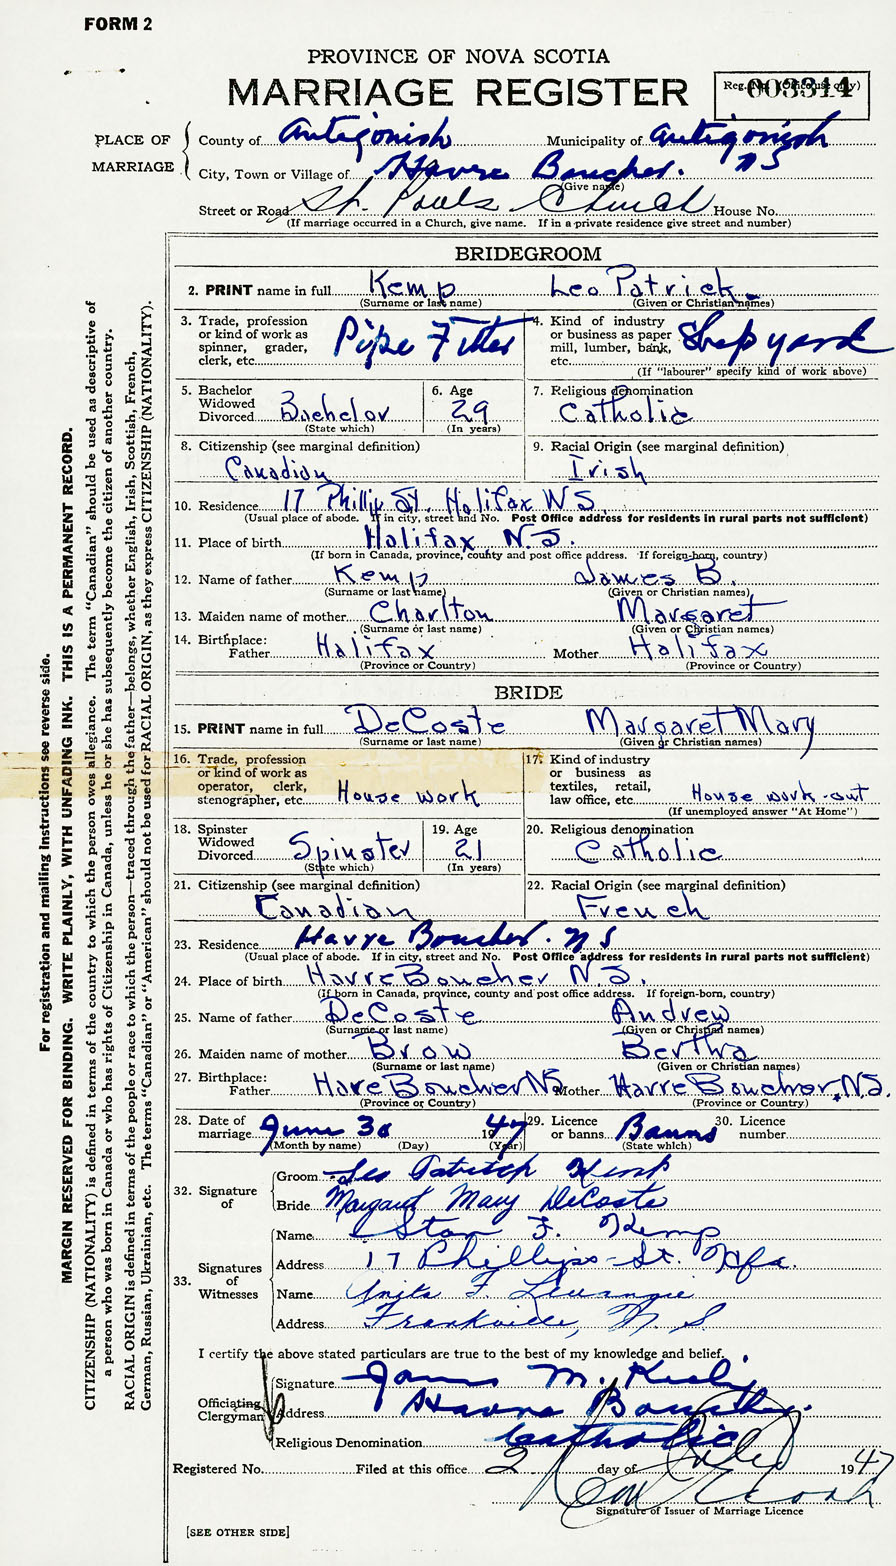 FORM 2
PROVINCE OF NOVA SCOTIA
MARRIAGE REGISTER
Reg. No. (Office use only)
003344
PLACE OF MARRIAGE
County of Antigonish Municipality of Antigonish
City, Town or Village of Havre Boucher. NS
(Give name)
Street or Road St. Pauls Church House No.
(If marriage occurred in a Church, give name. If in a private residence give street and number)
BRIDEGROOM
2. PRINT name in full Kemp Leo Patrick
(Surname or last name) (Given or Christian names)
3. Trade, profession or kind of work as spinner, grader, clerk, etc. Pipe Fitter
4. Kind of industry or business as paper mill, lumber, bank, etc. Shipyard
(If "labourer" specify kind of work above)
5. Bachelor Widowed Divorced Bachelor
(State which)
6. Age 29
(In years)
7. Religious denomination
Catholic
8. Citizenship (see marginal definition)
Canadian
9. Racial Origin (see marginal definition)
Irish
10. Residence 17 Phillip St. Halifax NS.
(Usual place of abode. If in city, street and No. Post Office address for residents in rural parts not sufficient)
11. Place of birth Halifax N.S.
(If born in Canada, province, county and post office address. If foreign-born, country)
12. Name of father Kemp James B.
(Surname or last name) (Given or Christian names)
13. Maiden name of mother Charlton Margaret
(Surname or last name) (Given or Christian names)
14. Birthplace:
Father Halifax Mother Halifax
(Province or Country) (Province or Country)
BRIDE
15. PRINT name in full DeCoste Margaret Mary
(Surname or last name) (Given or Christian names)
16. Trade, profession or kind of work as operator, clerk, stenographer, etc. House work
17. Kind of industry or business as textiles, retail, law office, etc. House work-out
(If unemployed answer "At Home")
18. Spinster Widowed Divorced Spinster
(State which)
19. Age 21
(In years)
20. Religious denomination
Catholic
21. Citizenship (see marginal definition)
Canadian
22. Racial Origin (see marginal definition)
French
23. Residence Havre Boucher. NS
(Usual place of abode. If in city, street and No. Post Office address for residents in rural parts not sufficient)
24. Place of birth Harre Boucher N.S.
(If born in Canada, province, county and post office address. If foreign-born, country)
25. Name of father DeCoste Andrew
(Surname or last name) (Given or Christian names)
26. Maiden name of mother Brow Bertha
(Surname or last name) (Given or Christian names)
27. Birthplace:
Father Havre Boucher NS Mother Harre Boucher, N.S.
(Province or Country) (Province or Country)
28. Date of marriage June 30 1947
(Month by name) (Day) (Year)
29. Licence or banns Banns
(State which)
30. Licence number
32. Signature of
Groom Leo Patrick Kemp
Bride Margaret Mary DeCoste
33. Signatures of Witnesses
Name Stan F. Kemp
Address 17 Phillips St. Hfx.
Name Anita F
Address Frankville, N. S
I certify the above stated particulars are true to the best of my knowledge and belief.
Officiating Clergyman
Signature James M.
Address Havre Boucher.
Religious Denomination Catholic
Registered No. Filed at this office 2 day of July 1947
Signature of Issuer of Marriage Licence
[SEE OTHER SIDE]
For registration and mailing instructions see reverse side.
MARGIN RESERVED FOR BINDING. WRITE PLAINLY, WITH UNFADING INK. THIS IS A PERMANENT RECORD.
CITIZENSHIP (NATIONALITY) is defined in terms of the country to which the person owes allegiance. The term "Canadian" should be used as descriptive of
a person who was born in Canada or who has rights of Citizenship in Canada, unless he or she has subsequently become the citizen of another country.
RACIAL ORIGIN is defined in terms of the people or race to which the person—traced through the father—belongs, whether English, Irish, Scottish, French,
German, Russian, Ukrainian, etc. The terms "Canadian" or "American" should not be used for RACIAL ORIGIN, as they express CITIZENSHIP (NATIONALITY).